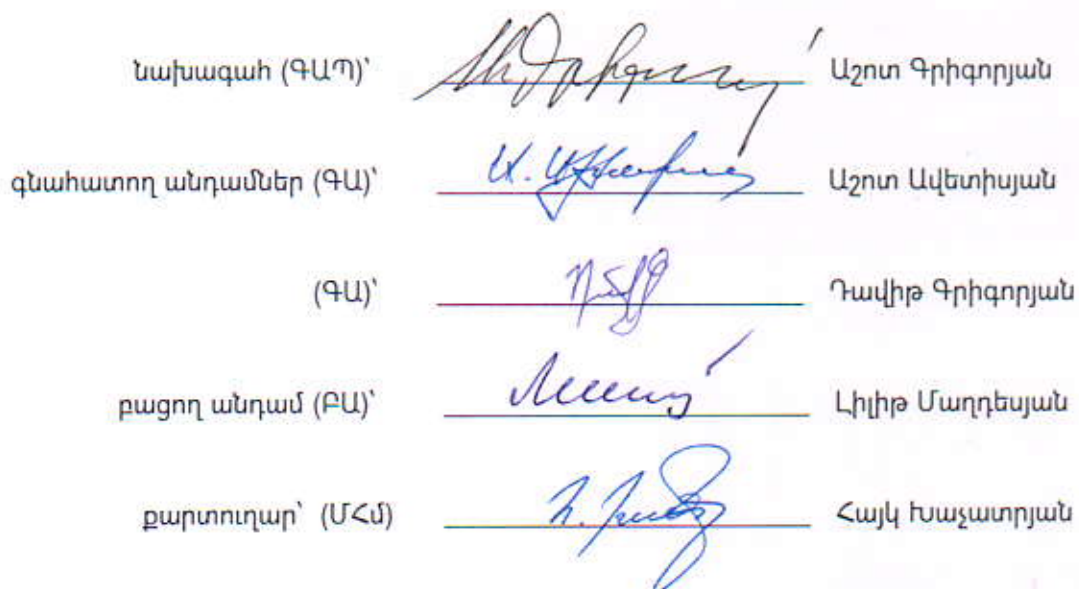 նախագահ (ԳԱՊ)՝ Աշոտ Գրիգորյան
գնահատող անդամներ (ԳԱ)՝ Աշոտ Ավետիսյան
(ԳԱ)՝ Դավիթ Գրիգորյան
բացող անդամ (ԲԱ)՝ Լիլիթ Մաղդեսյան
քարտուղար՝ (ՄՀմ) Հայկ Խաչատրյան